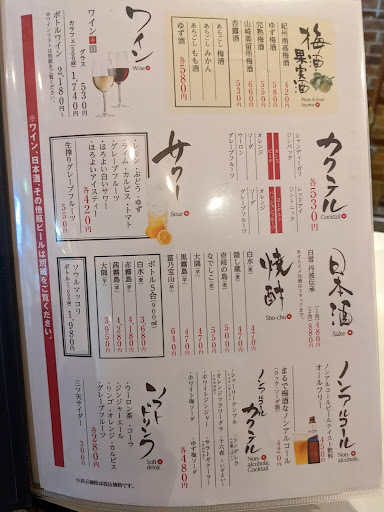 梅酒
果実酒
Plum & fruit liqueur
紀州南高梅酒 420円
ゆず梅酒 580円
完熟梅酒 550円
山崎蒸留所梅酒 660円
杏露酒 550円
あらごし梅酒
あらごしみかん
あらごしもも酒
ゆず酒
各580円
ワイン
Wine
赤 白
グラス 530円
カラフェ(500㎖) 1,740円
ボトルワイン 2,180円〜
※ワインリストは別紙をご覧ください。
カクテル
Cocktail
各530円
シャンディガフ
ジンバック
レッドアイ
ジントニック
オレンジ
ウーロン
ソーダ
グレープフルーツ
サワー
Sour
・レモン・ぶどう・ゆず
・ライム・カルピス・トマト
・ほろよい白いサワー
・ほろよいアイスティー
・グレープフルーツ
各420円
生搾りグレープフルーツ 550円
日本酒
Sake
白雪 丹波伝承
焼酎
Sho-chu
白水(麦) 470円
隠し蔵(麦) 470円
壱岐の島(麦) 500円
なでしこ(麦) 550円
大隅(芋) 470円
黒霧島(芋) 470円
富乃宝山(芋) 640円
ボトル 5合(900㎖)
白水(麦) 3,680円
赤霧島(芋) 4,280円
黒霧島(芋) 4,180円
大隅(芋) 3,950円
ソウルマッコリ
ボトル 1,980円
ノンアルコール
Non-alcoholic
ノンアルコールビールテイスト飲料
オールフリー
まるで梅酒なノンアルコール
(ロック・ソーダ割)
420円
ノンアルコール
カクテル
Non-alcoholic
Cocktail
・シャーリーテンプル
・シンデレラ
・オレンジフラワーグラ
・ホワイトジンジャー
・サウトボクーラー
・ホワイト梅ソーダ
・ゆず蜜ソーダ
各480円
ソフトドリンク
Soft drink
・ウーロン茶・コーラ
・ジンジャーエール
・リンゴ・オレンジ・カルピス
・グレープフルーツ
各280円
三ツ矢サイダー 300円
※ワイン、日本酒、その他瓶ビールは別紙をご覧ください。
※表示価格は税込価格です。